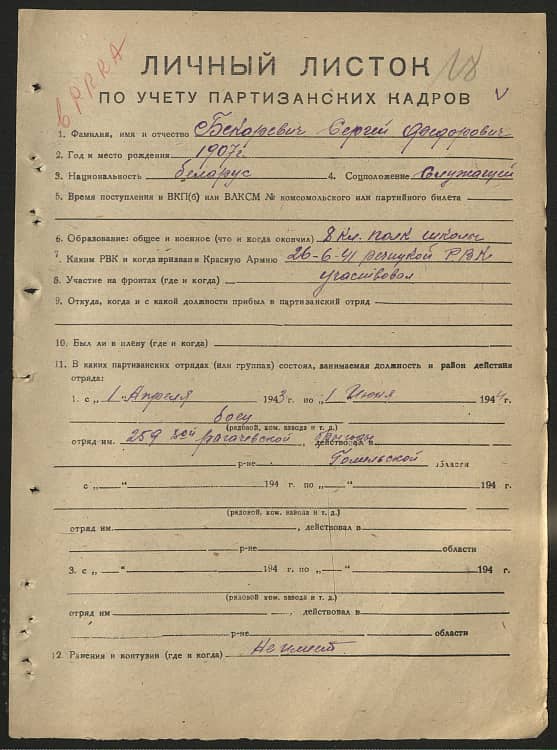 в РККА
18
ЛИЧНЫЙ ЛИСТОК
ПО УЧЕТУ ПАРТИЗАНСКИХ КАДРОВ
1. Фамилия, имя и отчество Бекаревич Сергей Федорович
2. Год и место рождения 1907г.
3. Национальность беларус 4. Соцположение Служащий
5. Время поступления и ВКП(б) или ВЛКСМ № комсомольского или партийного билета
6. Образование: общее и военное (что и когда окончил) 8 кл. полк школы
7. Каким РВК и когда призван в Красную Армию 26-6-41 речицкой РВК
8. Участие на фронтах (где и когда) участвовал
9. Откуда, когда и с какой должности прибыл в партизанский отряд
10. Был ли в плену (где и когда)
11. В каких партизанских отрядах (или группах) состоял, занимаемая должность и район действия
отряда:
1. с „1 Апреля 1943 г. по „1 Июня 1944 г.
боец
(рядовой, ком. взвода и т. д.)
отряд им. 259 рагачевской действовал в
р-не Гомельской области
с „ “ 194 г. по „ “ 194 г.
(рядовой, ком. взвода и т. д.)
отряд им. , действовал в
р-не области
3. с „ “ 194 г. по „ “ 194 г.
(рядовой, ком. взвода и т. д.)
отряд им , действовал в
р-не области
12. Ранения и контузии (где и когда) Не имеет